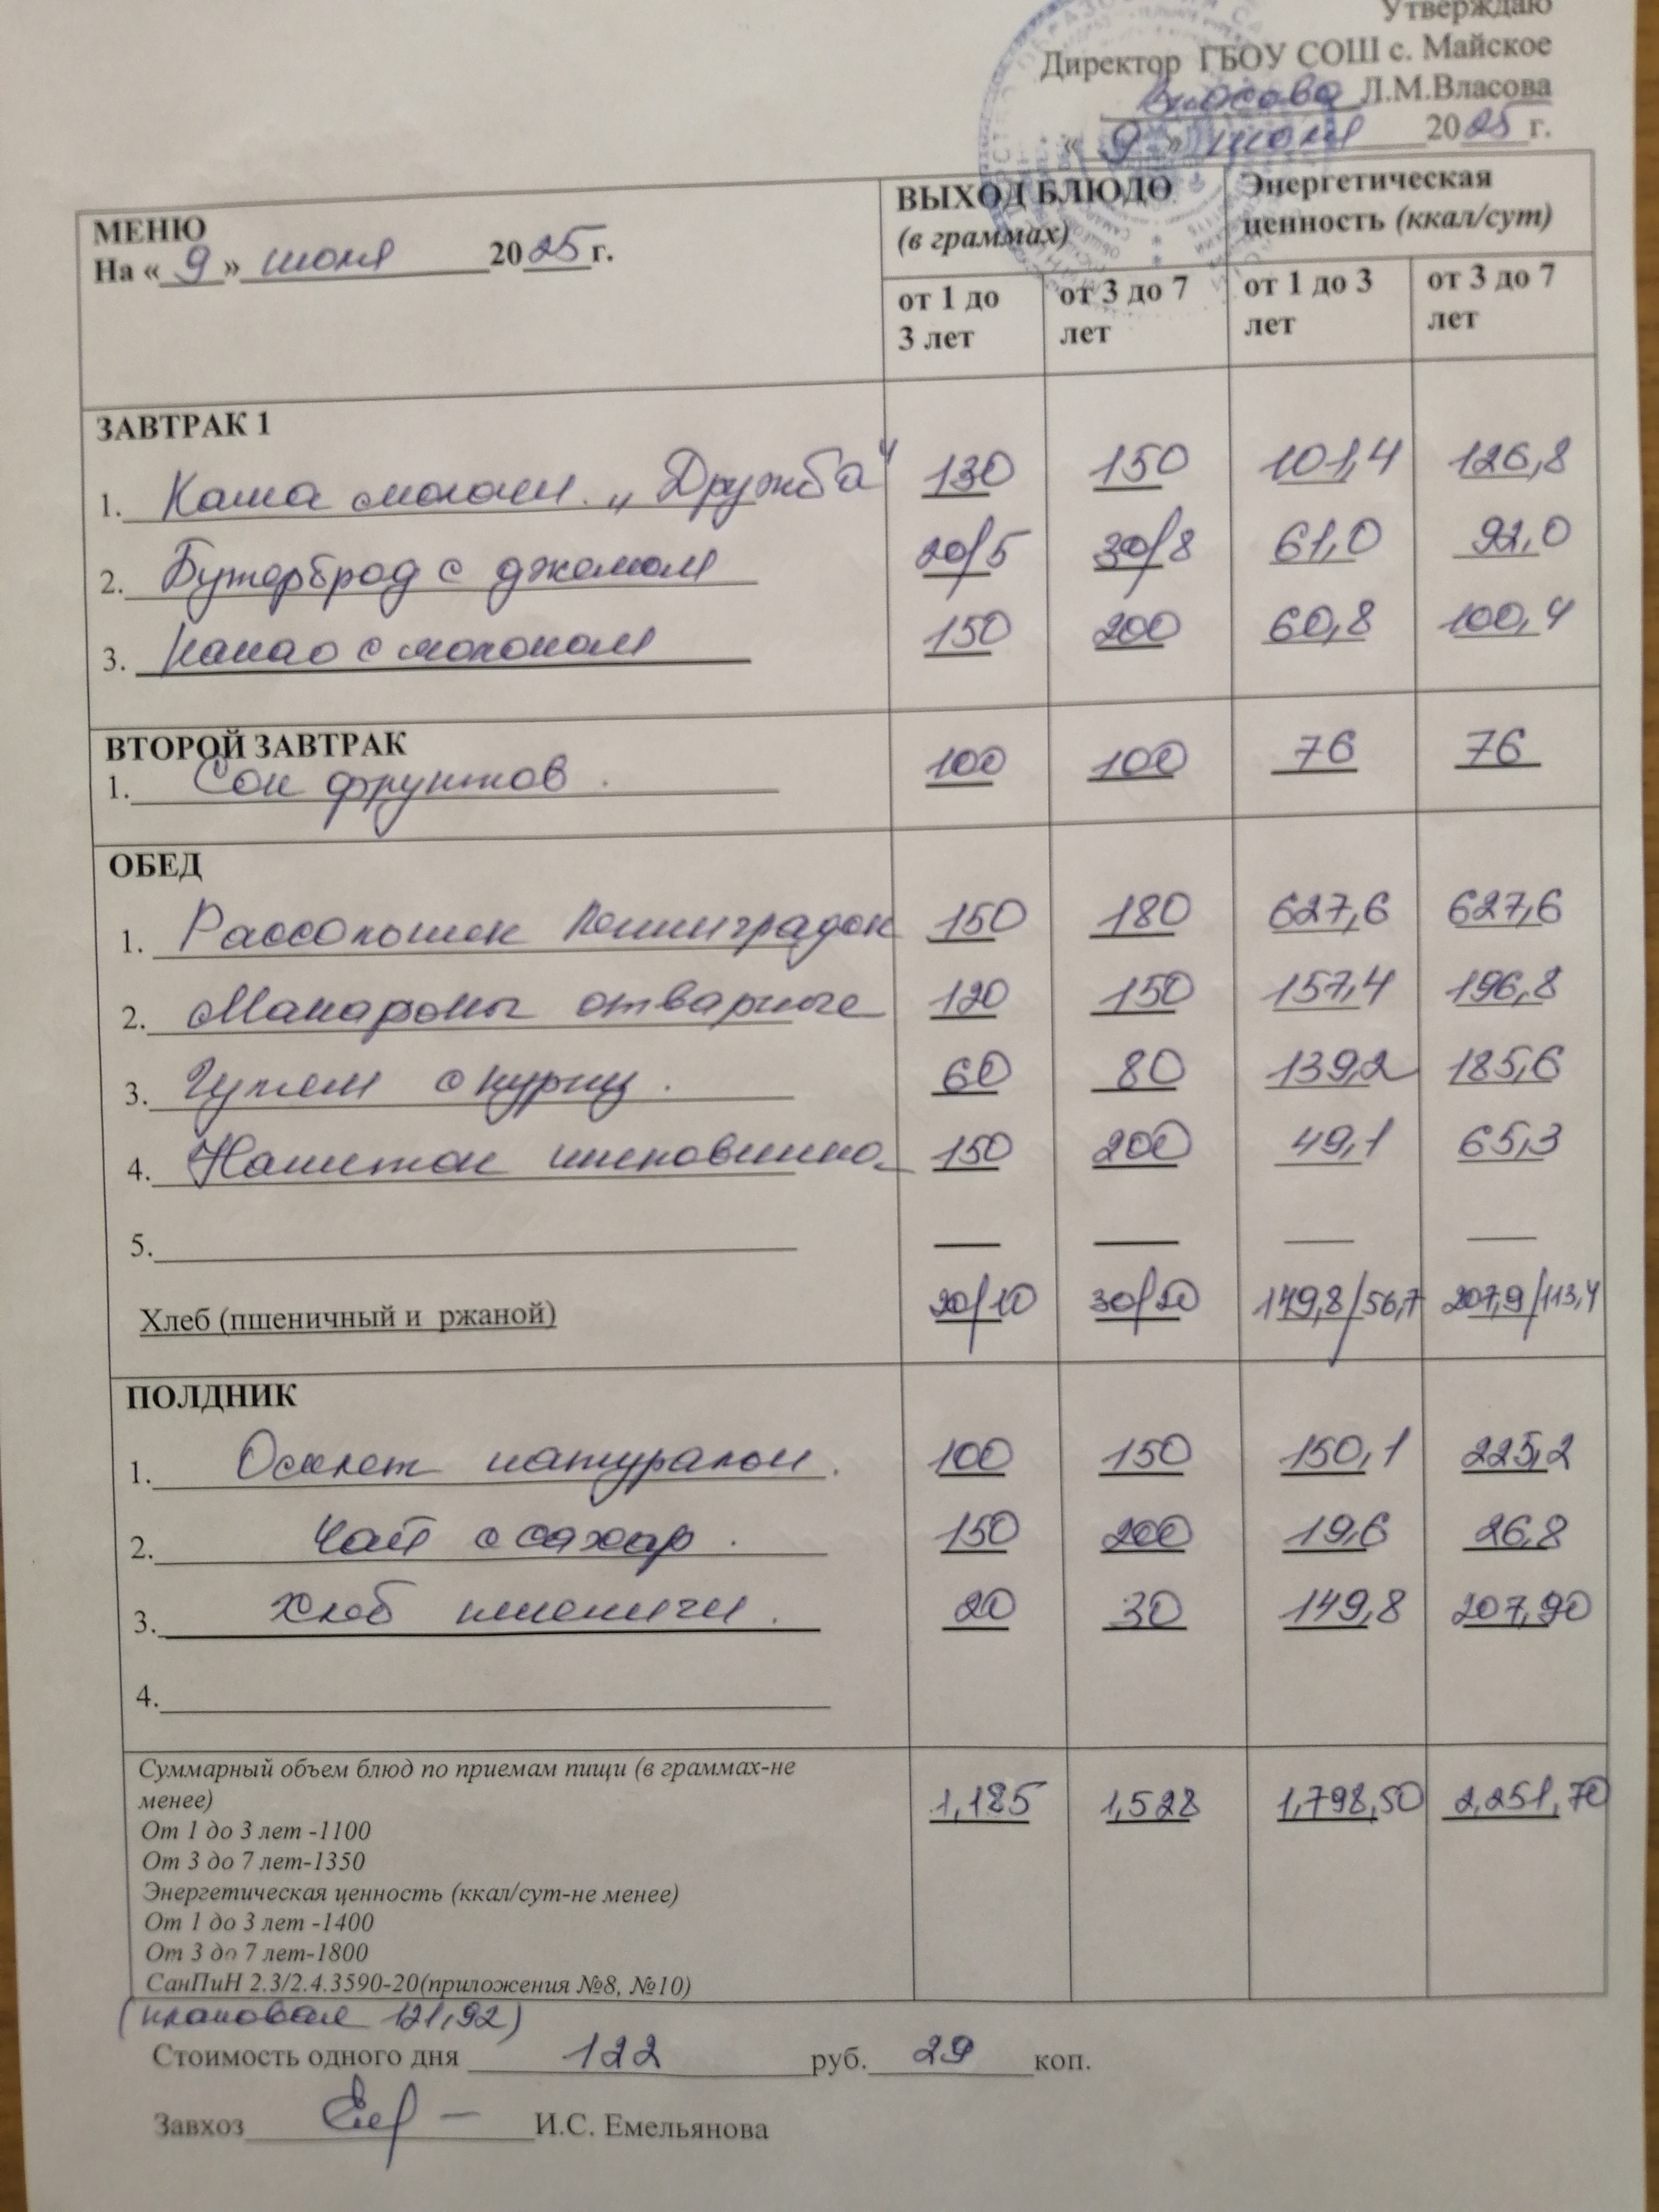 Утверждаю
Директор ГБОУ СОШ с. Майское
Власова Л.М.Власова
« 9 » июня 2025 г.
МЕНЮ
На « 9 » июня 2025 г.
ВЫХОД БЛЮДО
(в граммах)
Энергетическая
ценность (ккал/сут)
от 1 до 3 лет от 3 до 7 лет от 1 до 3 лет от 3 до 7 лет
ЗАВТРАК 1
1. Каша молочн. „Дружба“ 130 150 101,4 126,8
2. Бутерброд с джемом 20/5 30/8 61,0 92,0
3. Какао с молоком 150 200 60,8 100,4
ВТОРОЙ ЗАВТРАК
1. Сок фруктов. 100 100 76 76
ОБЕД
1. Рассольник Ленинградск 150 180 627,6 627,6
2. Макароны отварные 120 150 157,4 196,8
3. Гуляш с куриц. 60 80 139,2 185,6
4. Напиток шиповник. 150 200 49,1 65,3
5. — — — —
Хлеб (пшеничный и ржаной) 20/10 30/20 149,8/56,7 207,9/113,4
ПОЛДНИК
1. Омлет натуральн. 100 150 150,1 225,2
2. Чай с сахар. 150 200 19,6 26,8
3. Хлеб пшеничн. 20 30 149,8 207,90
4.
Суммарный объем блюд по приемам пищи (в граммах-не
менее)
1,185 1,528 1,798,50 2,251,70
От 1 до 3 лет -1100
От 3 до 7 лет-1350
Энергетическая ценность (ккал/сут-не менее)
От 1 до 3 лет -1400
От 3 до 7 лет-1800
СанПиН 2.3/2.4.3590-20(приложения №8, №10)
(плановая 121,92)
Стоимость одного дня 122 руб. 29 коп.
Завхоз И.С. Емельянова